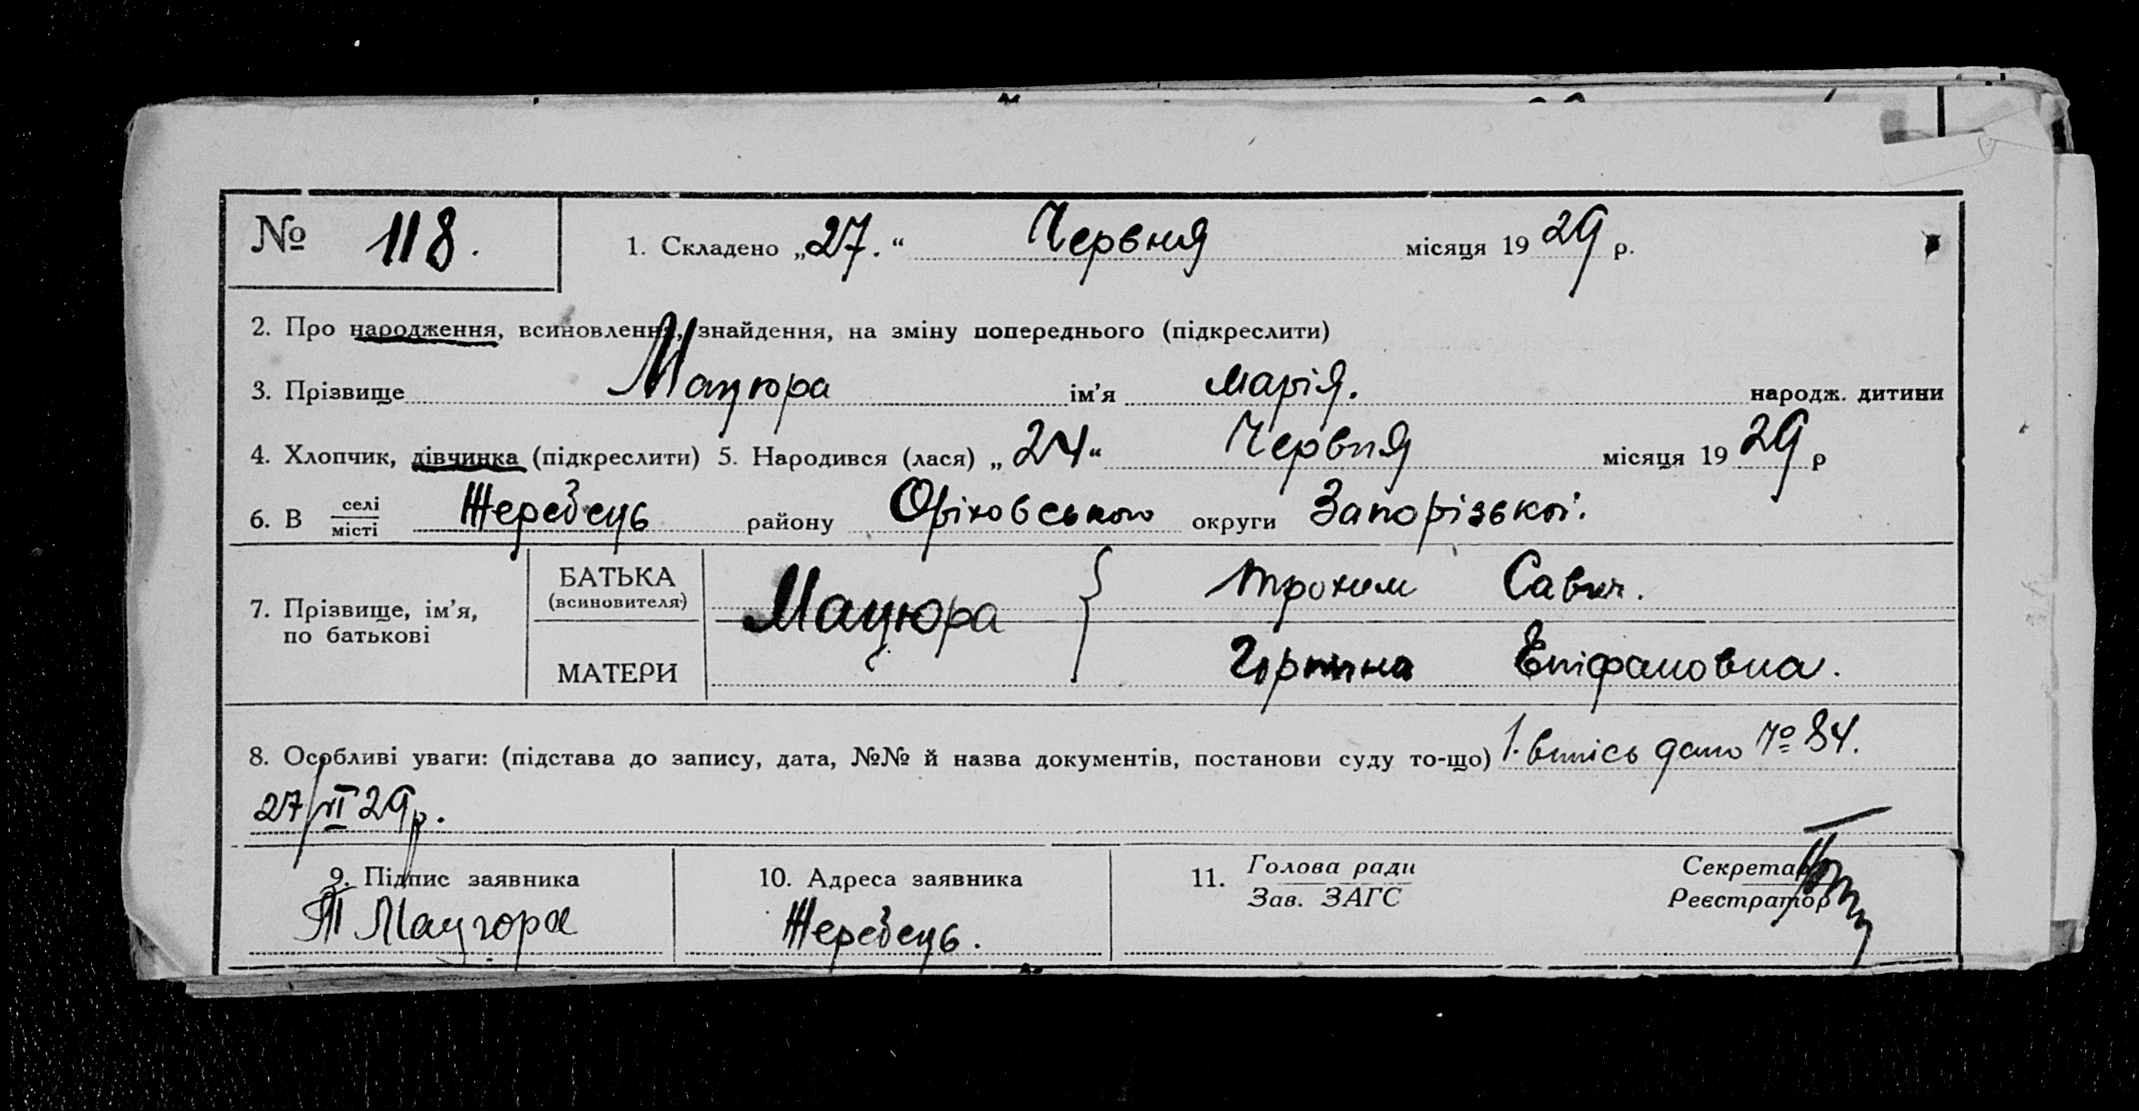 № 118.
1. Складено „27.“ Червня місяця 1929 р.
2. Про народження, всиновлення, знайдення, на зміну попереднього (підкреслити)
3. Прізвище Мацюра ім’я Марія. народж. дитини
4. Хлопчик, дівчинка (підкреслити) 5. Народився (лася) „24“ Червня місяця 1929 р
6. В селі
місті Жеребець району Оріховського округи Запорізької.
7. Прізвище, ім’я,
по батькові
БАТЬКА
(всиновителя)
МАТЕРИ
Мацюра { Трохим Савич.
Горпина Епіфановна.
8. Особливі уваги: (підстава до запису, дата, №№ й назва документів, постанови суду то-що) 1. випись дано № 84.
27/VI 29 р.
9. Підпис заявника
Т Мацюра
10. Адреса заявника
Жеребець.
11. Голова ради
Зав. ЗАГС
Секретар
Реєстратор